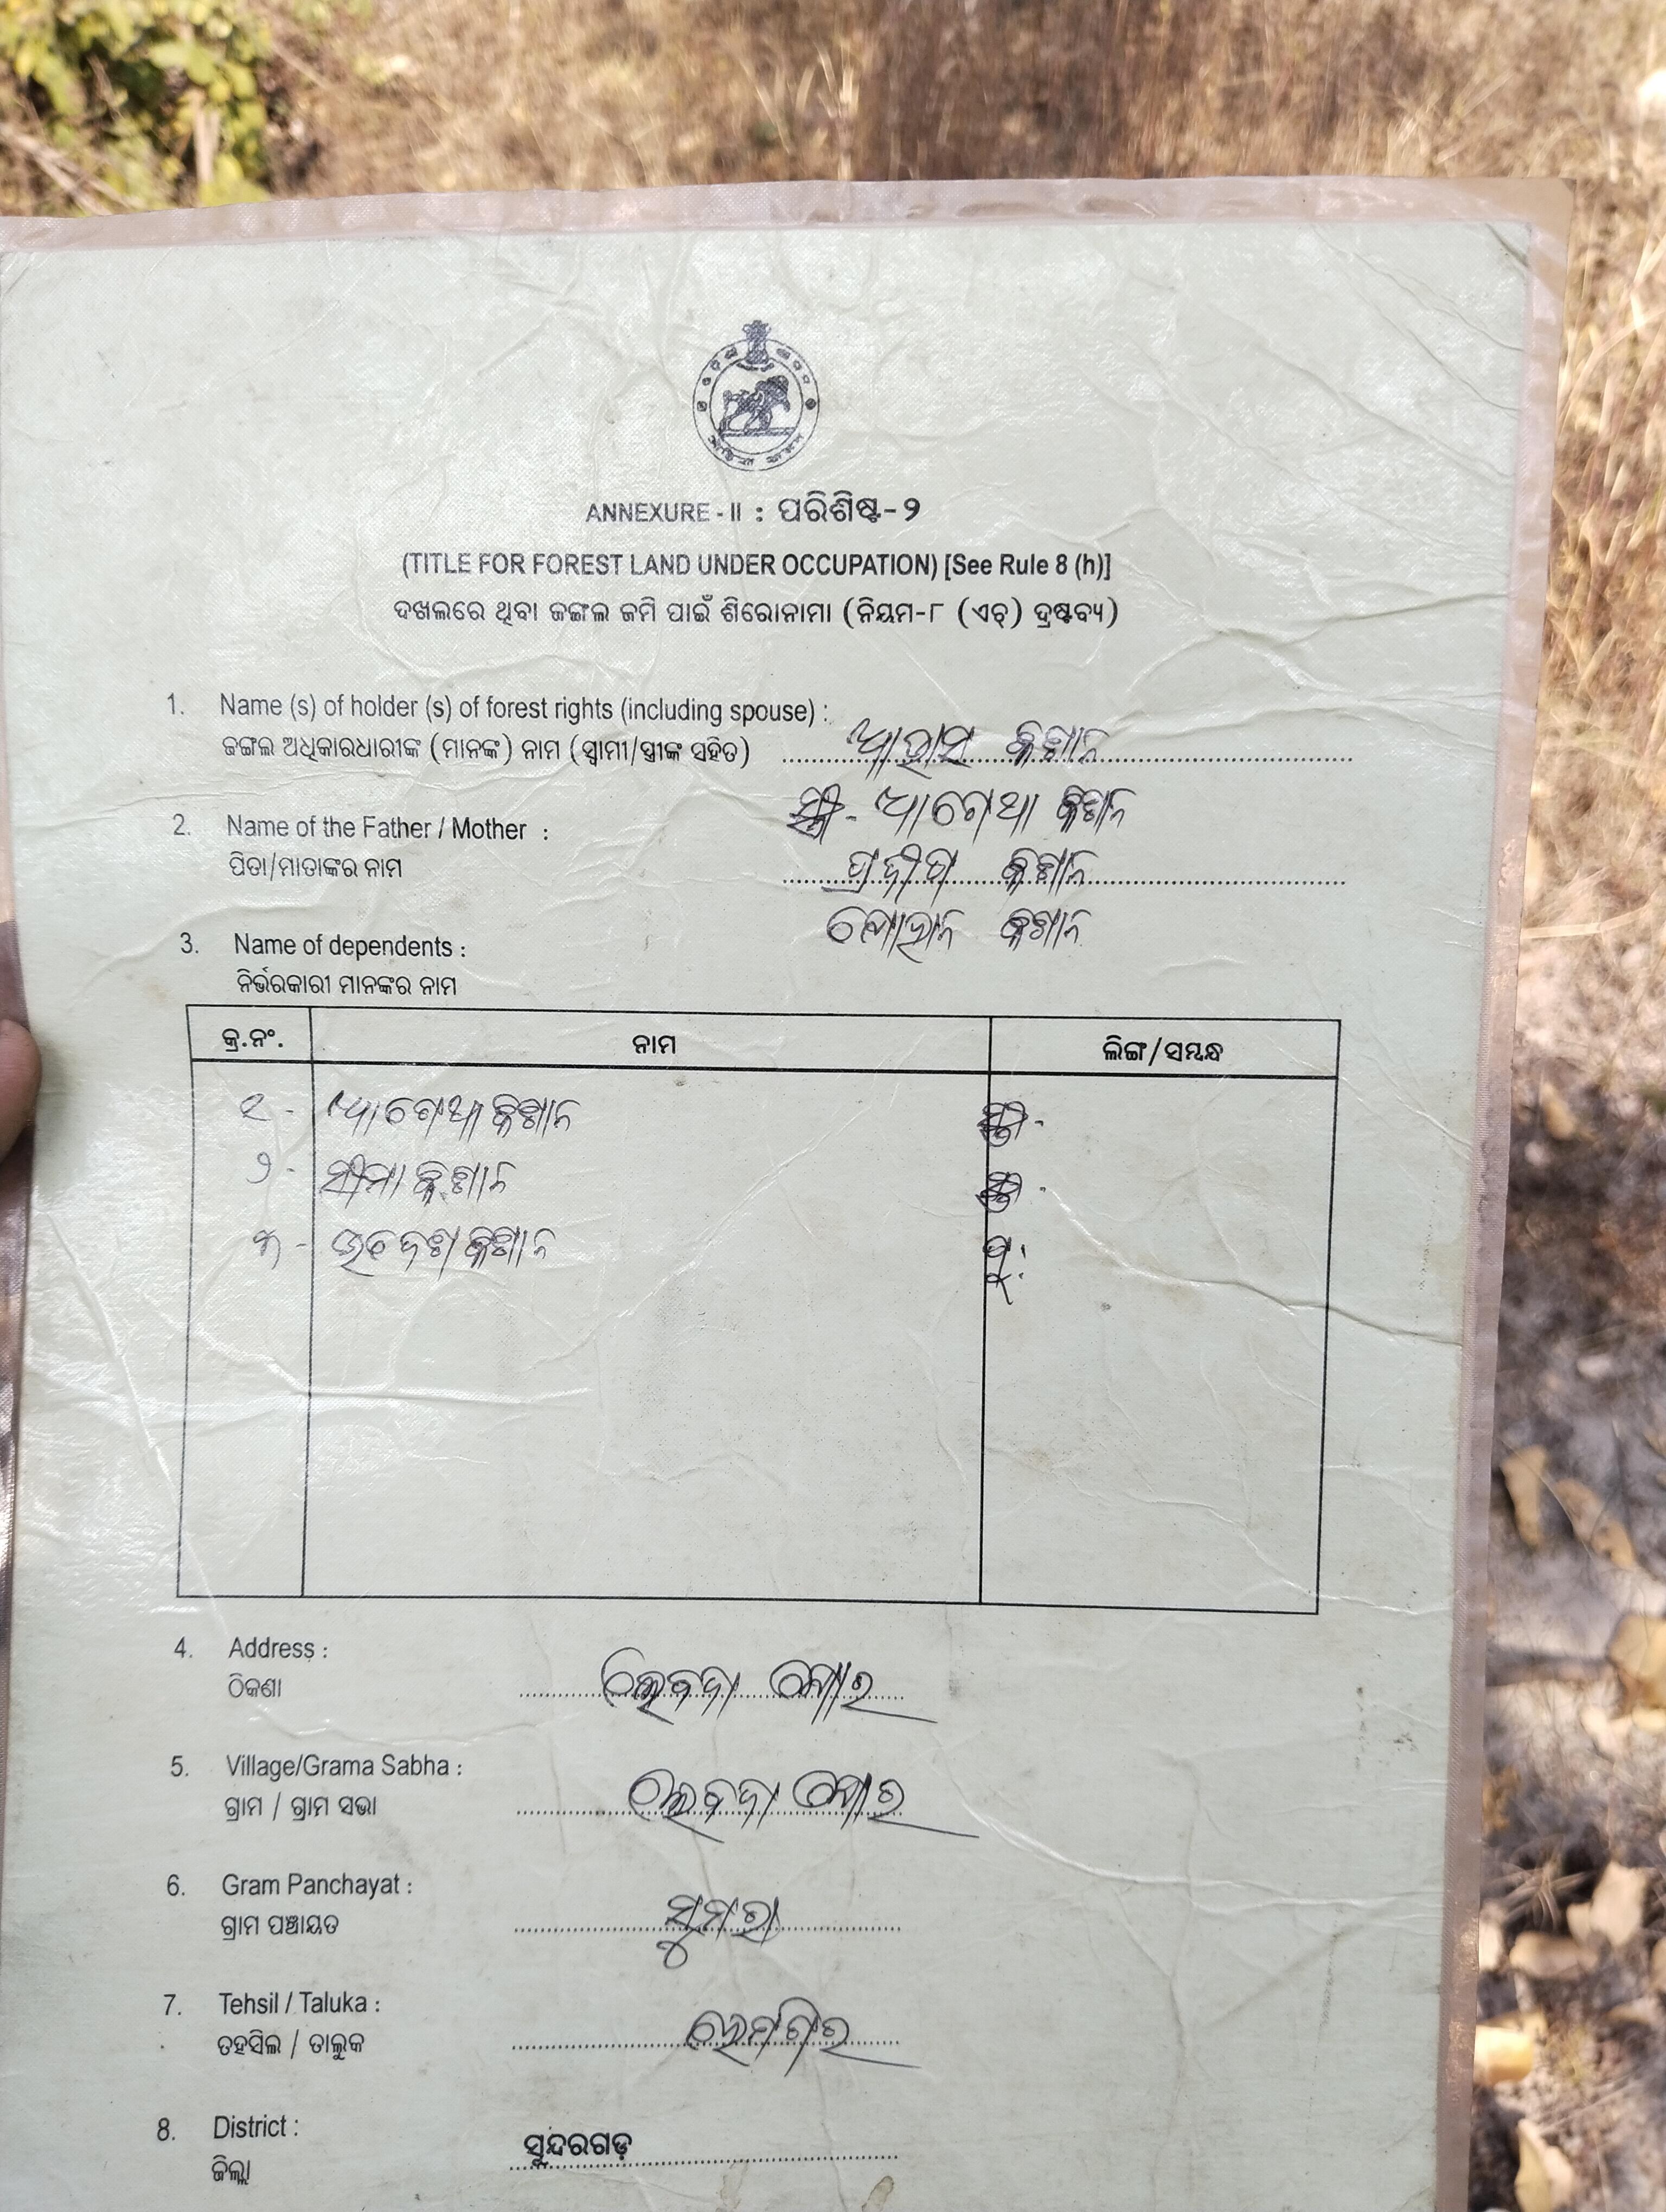 ANNEXURE - II : ପରିଶିଷ୍ଟ-୨
(TITLE FOR FOREST LAND UNDER OCCUPATION) [See Rule 8 (h)]
ଦଖଲରେ ଥିବା ଜଙ୍ଗଲ ଜମି ପାଇଁ ଶିରୋନାମା (ନିୟମ-୮ (ଏଚ୍) ଦ୍ରଷ୍ଟବ୍ୟ)
1. Name (s) of holder (s) of forest rights (including spouse) :
ଜଙ୍ଗଲ ଅଧିକାରଧାରୀଙ୍କ (ମାନଙ୍କ) ନାମ (ସ୍ୱାମୀ/ସ୍ତ୍ରୀଙ୍କ ସହିତ) କିଷାନ
ସ୍ତ୍ରୀ - ଆଗେଥା କିଷାନ
2. Name of the Father / Mother :
ପିତା/ମାତାଙ୍କର ନାମ ପ୍ରଦୀପ କିଷାନ
କିଷାନ
3. Name of dependents :
ନିର୍ଭରକାରୀ ମାନଙ୍କର ନାମ
କ୍ର.ନଂ. ନାମ ଲିଙ୍ଗ/ସମ୍ବନ୍ଧ
୧ - ଆଗେଥା କିଷାନ ସ୍ତ୍ରୀ -
୨ - ସୀମା କିଷାନ ସ୍ତ୍ରୀ -
୩ - କିଷାନ ପୁ:
4. Address :
ଠିକଣା
5. Village/Grama Sabha :
ଗ୍ରାମ / ଗ୍ରାମ ସଭା
6. Gram Panchayat :
ଗ୍ରାମ ପଞ୍ଚାୟତ ସୁମରା
7. Tehsil / Taluka :
ତହସିଲ / ତାଲୁକ ହେମଗିର
8. District :
ଜିଲ୍ଲା ସୁନ୍ଦରଗଡ଼